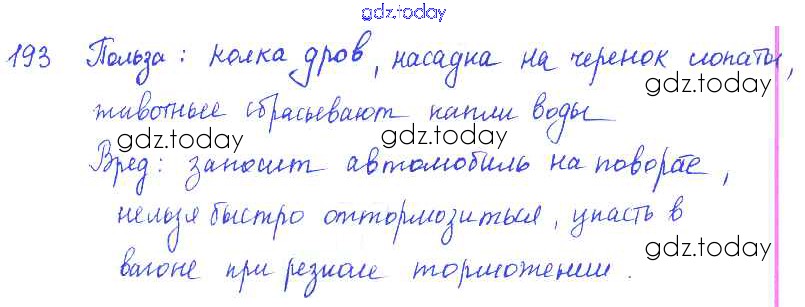 gdz.today
193 Польза: колка дров, насадка на черенок лопаты,
gdz.today
животные сбрасывают капли воды
gdz.today gdz.today
Вред: заносит автомобиль на поворте,
gdz.today
нельзя быстро оттормозиться, упасть в
gdz.today
вагоне при резком торможении.